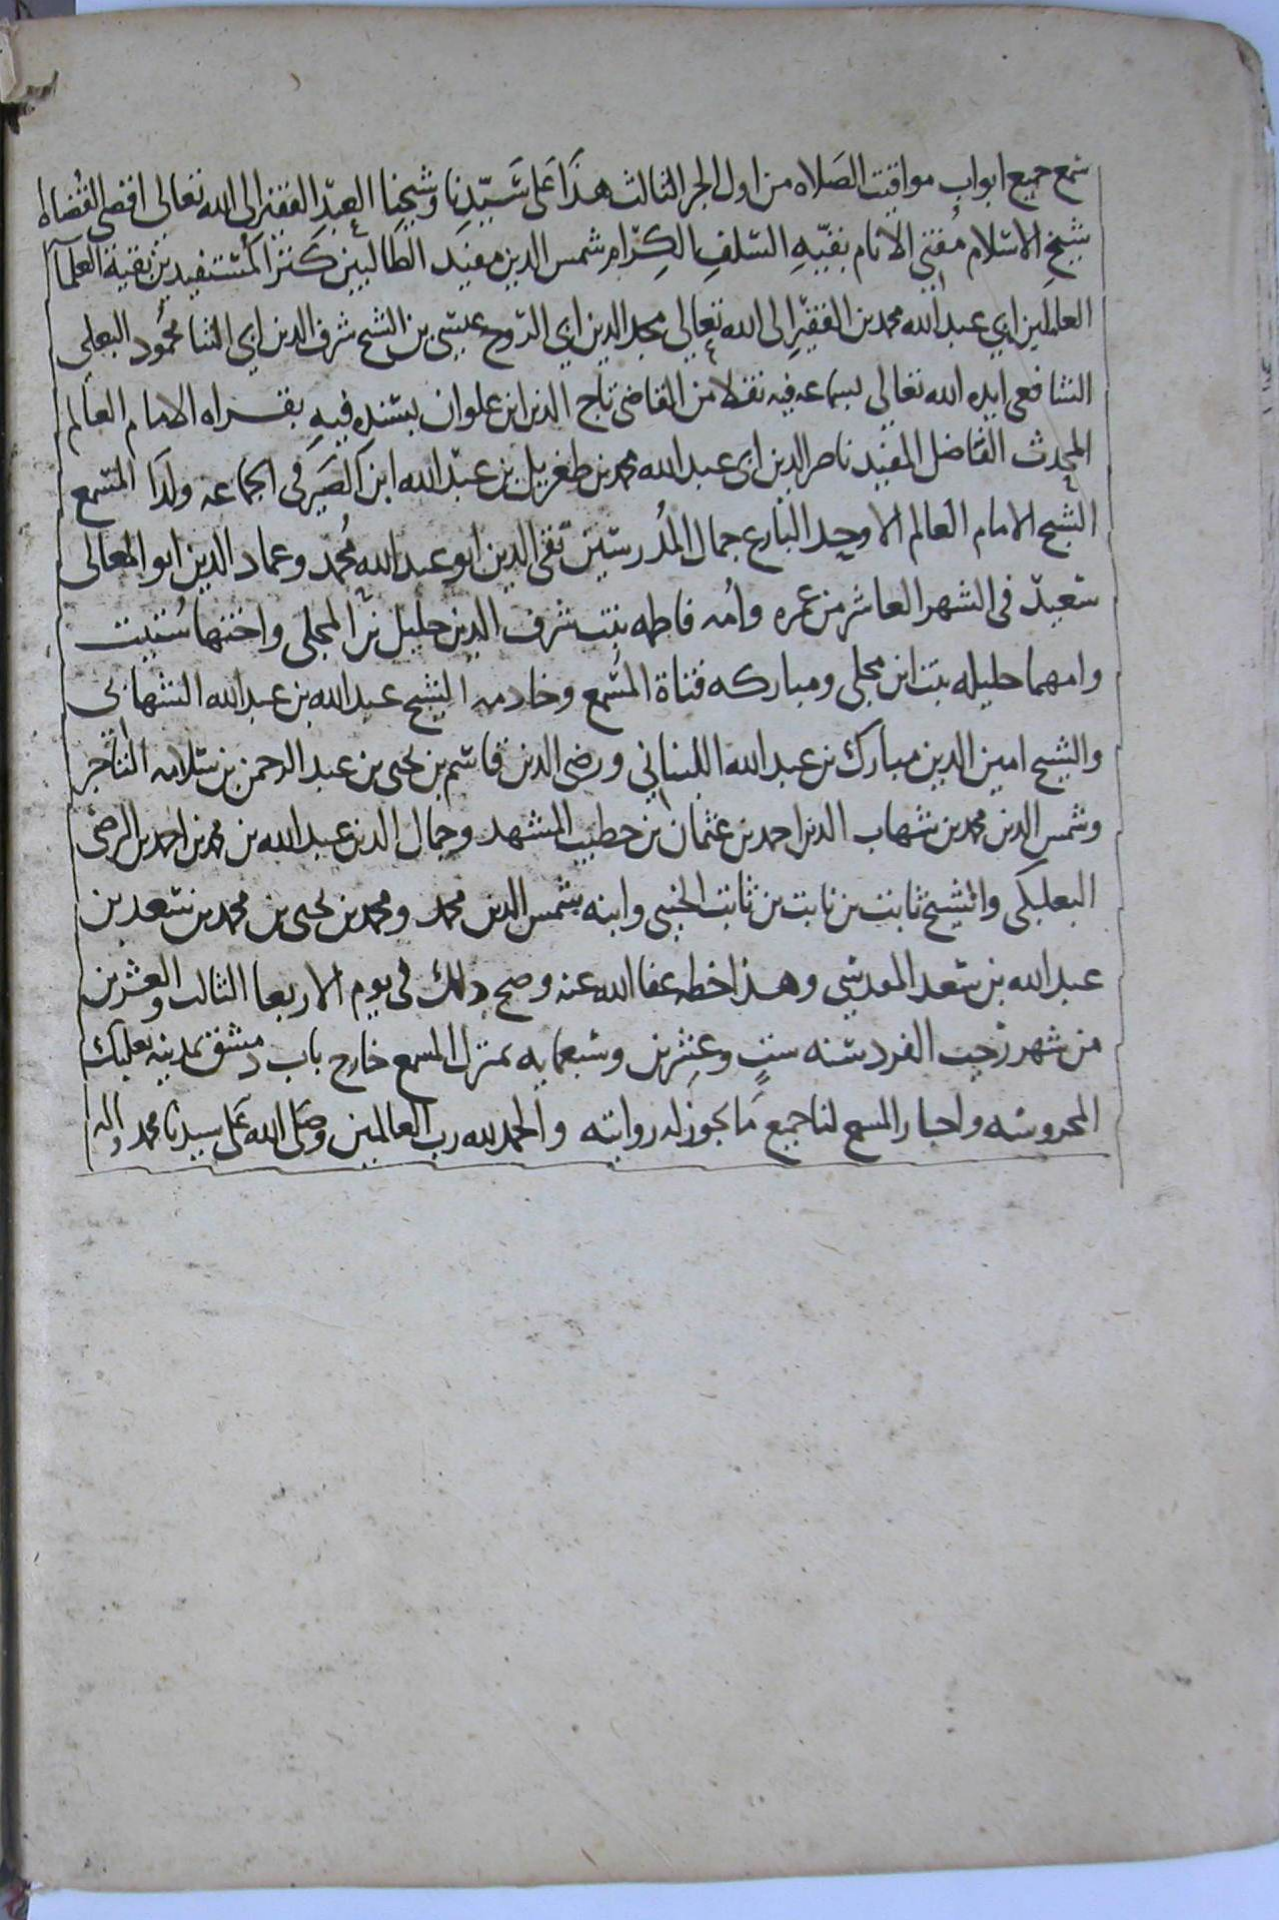 سمع جميع ابواب مواقيت الصلاه من اول الجز الثالث هذا على سيدنا وشيخنا العبد الفقير الى الله تعالى اقضى القضاه
شيخ الاسلام مفتي الانام بقيه السلف الكرام شمس الدين مفيد الطالبين كنز المستفيدين بقية العلمآ
العاملين ابي عبد الله محمد بن الفقير الى الله تعالي مجد الدين ابي الروح عيسى بن الشيخ شرف الدين ابي الثنا محمود البعلي
الشافعي ايده الله تعالي بسماعه فيه نقلا من القاضي تاج الدين ابن علوان بسنده فيه بقراه الامام العالم
المحدث الفاضل المفيد ناصر الدين ابي عبد الله محمد بن طغريل بن عبد الله ابن الصيرفي الجماعه ولدا المسمع
الشيخ الامام العالم الاوحد البارع جمال المدرسين تقي الدين ابو عبد الله محمد وعماد الدين ابو المعالي
سعيد في الشهر العاشر من عمره وامه فاطمه بنت شرف الدين خليل بن المجلي واختها ستيت
وامهما حليله بنت ابن مجلي ومباركه فتاة المسمع وخادمه الشيخ عبد الله بن عبد الله الشهابي
والشيخ امين الدين مبارك بن عبد الله اللبناني ورضي الدين قاسم بن يحيى بن عبد الرحمن بن سلامه التاجر
وشمس الدين محمد بن شهاب الدين احمد بن عثمان بن خطيب المشهد وجمال الدين عبد الله بن محمد بن احمد بن الرضي
البعلبكي والشيخ ثابت بن ثابت بن ثابت وابنه شمس الدين محمد ومحمد بن يحيى بن محمد بن سعد بن
عبد الله بن سعد المقدسي وهذا خطه عفا الله عنه وصح ذلك في يوم الاربعا الثالث والعشرين
من شهر رجب الفرد سنه ست وعشرين وسبعمايه بمنزل المسمع خارج باب دمشق بمدينه بعلبك
المحروسه واجاز المسمع لنا جميع ما يجوز له روايته والحمد لله رب العالمين وصلى الله على سيدنا محمد واله